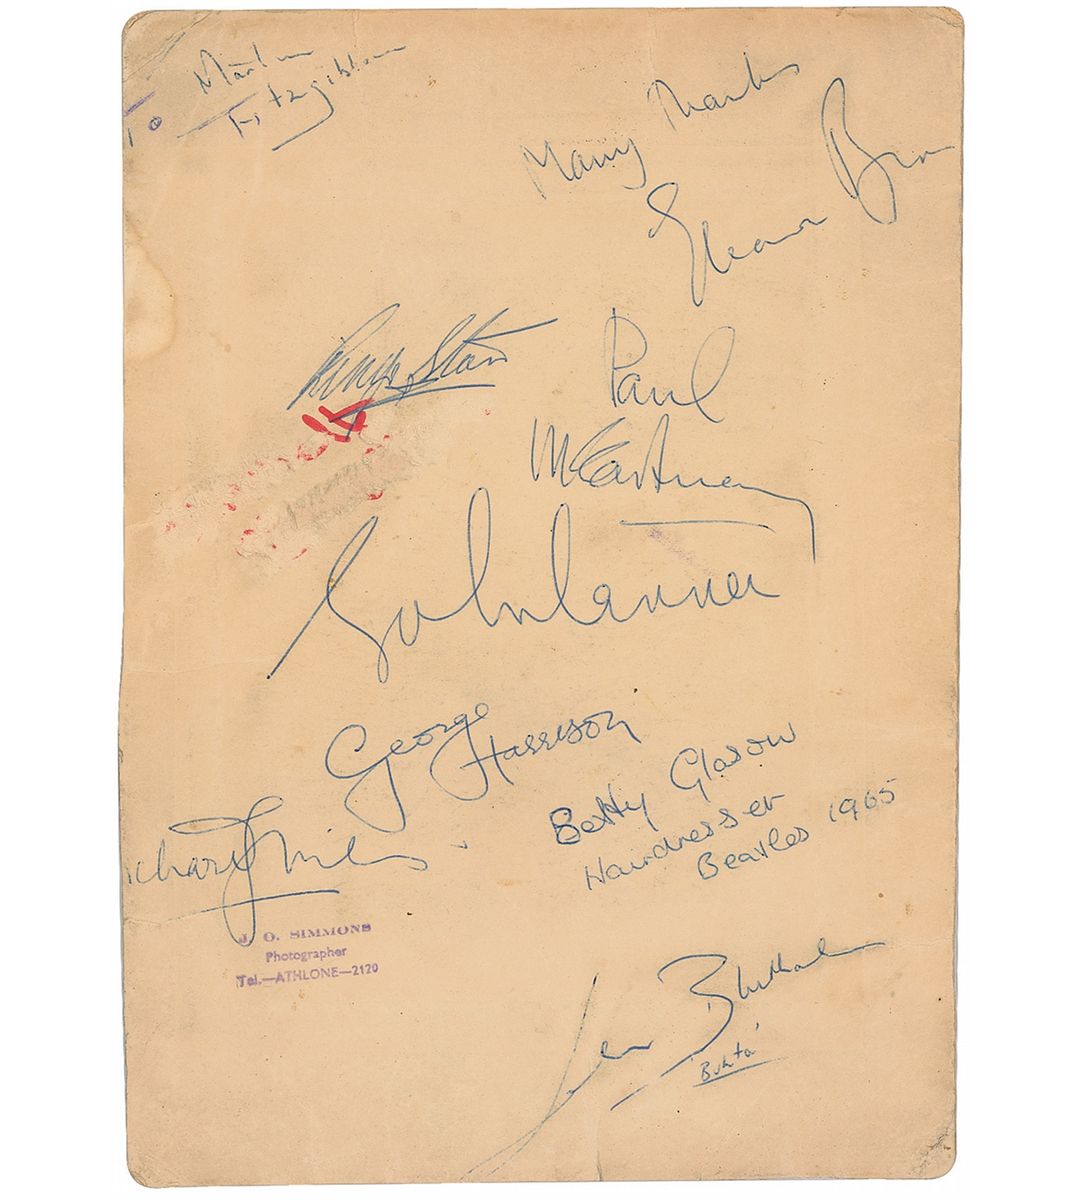 To Martin
Fitzgibbon
Many Thanks
Eleanor Bron
Ringo Starr
Paul
McCartney
John Lennon
George
Harrison
Betty Glasow
Hairdresser
Beatles 1965
J. O. SIMMONS
Photographer
Tel.—ATHLONE—2120